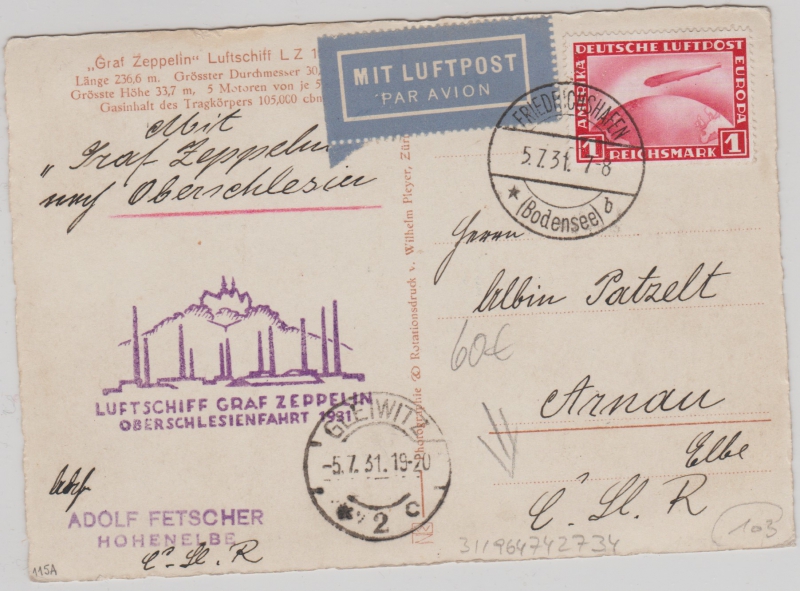 „Graf Zeppelin" Luftschiff L Z 1
Länge 236,6 m. Grösster Durchmesser 30,
Grösste Höhe 33,7 m, 5 Motoren von je 5
Gasinhalt des Tragkörpers 105,000 cbm
MIT LUFTPOST
PAR AVION
DEUTSCHE LUFTPOST
AMERIKA
EUROPA
1 REICHSMARK 1
FRIEDRICHSHAFEN
5.7.31. 7-8
(Bodensee) b
Mit
„Graf Zeppelin
nach Oberschlesien
Herrn
Albin Patzelt
60€
Arnau
Elbe
Č. Sl. R
LUFTSCHIFF GRAF ZEPPELIN
OBERSCHLESIENFAHRT 1931
GLEIWITZ
-5.7.31.19-20
2 c
Rotationsdruck v. Wilhelm Pleyer, Zür
Abs.
ADOLF FETSCHER
HOHENELBE
Č. Sl. R
115A
311964742734
103